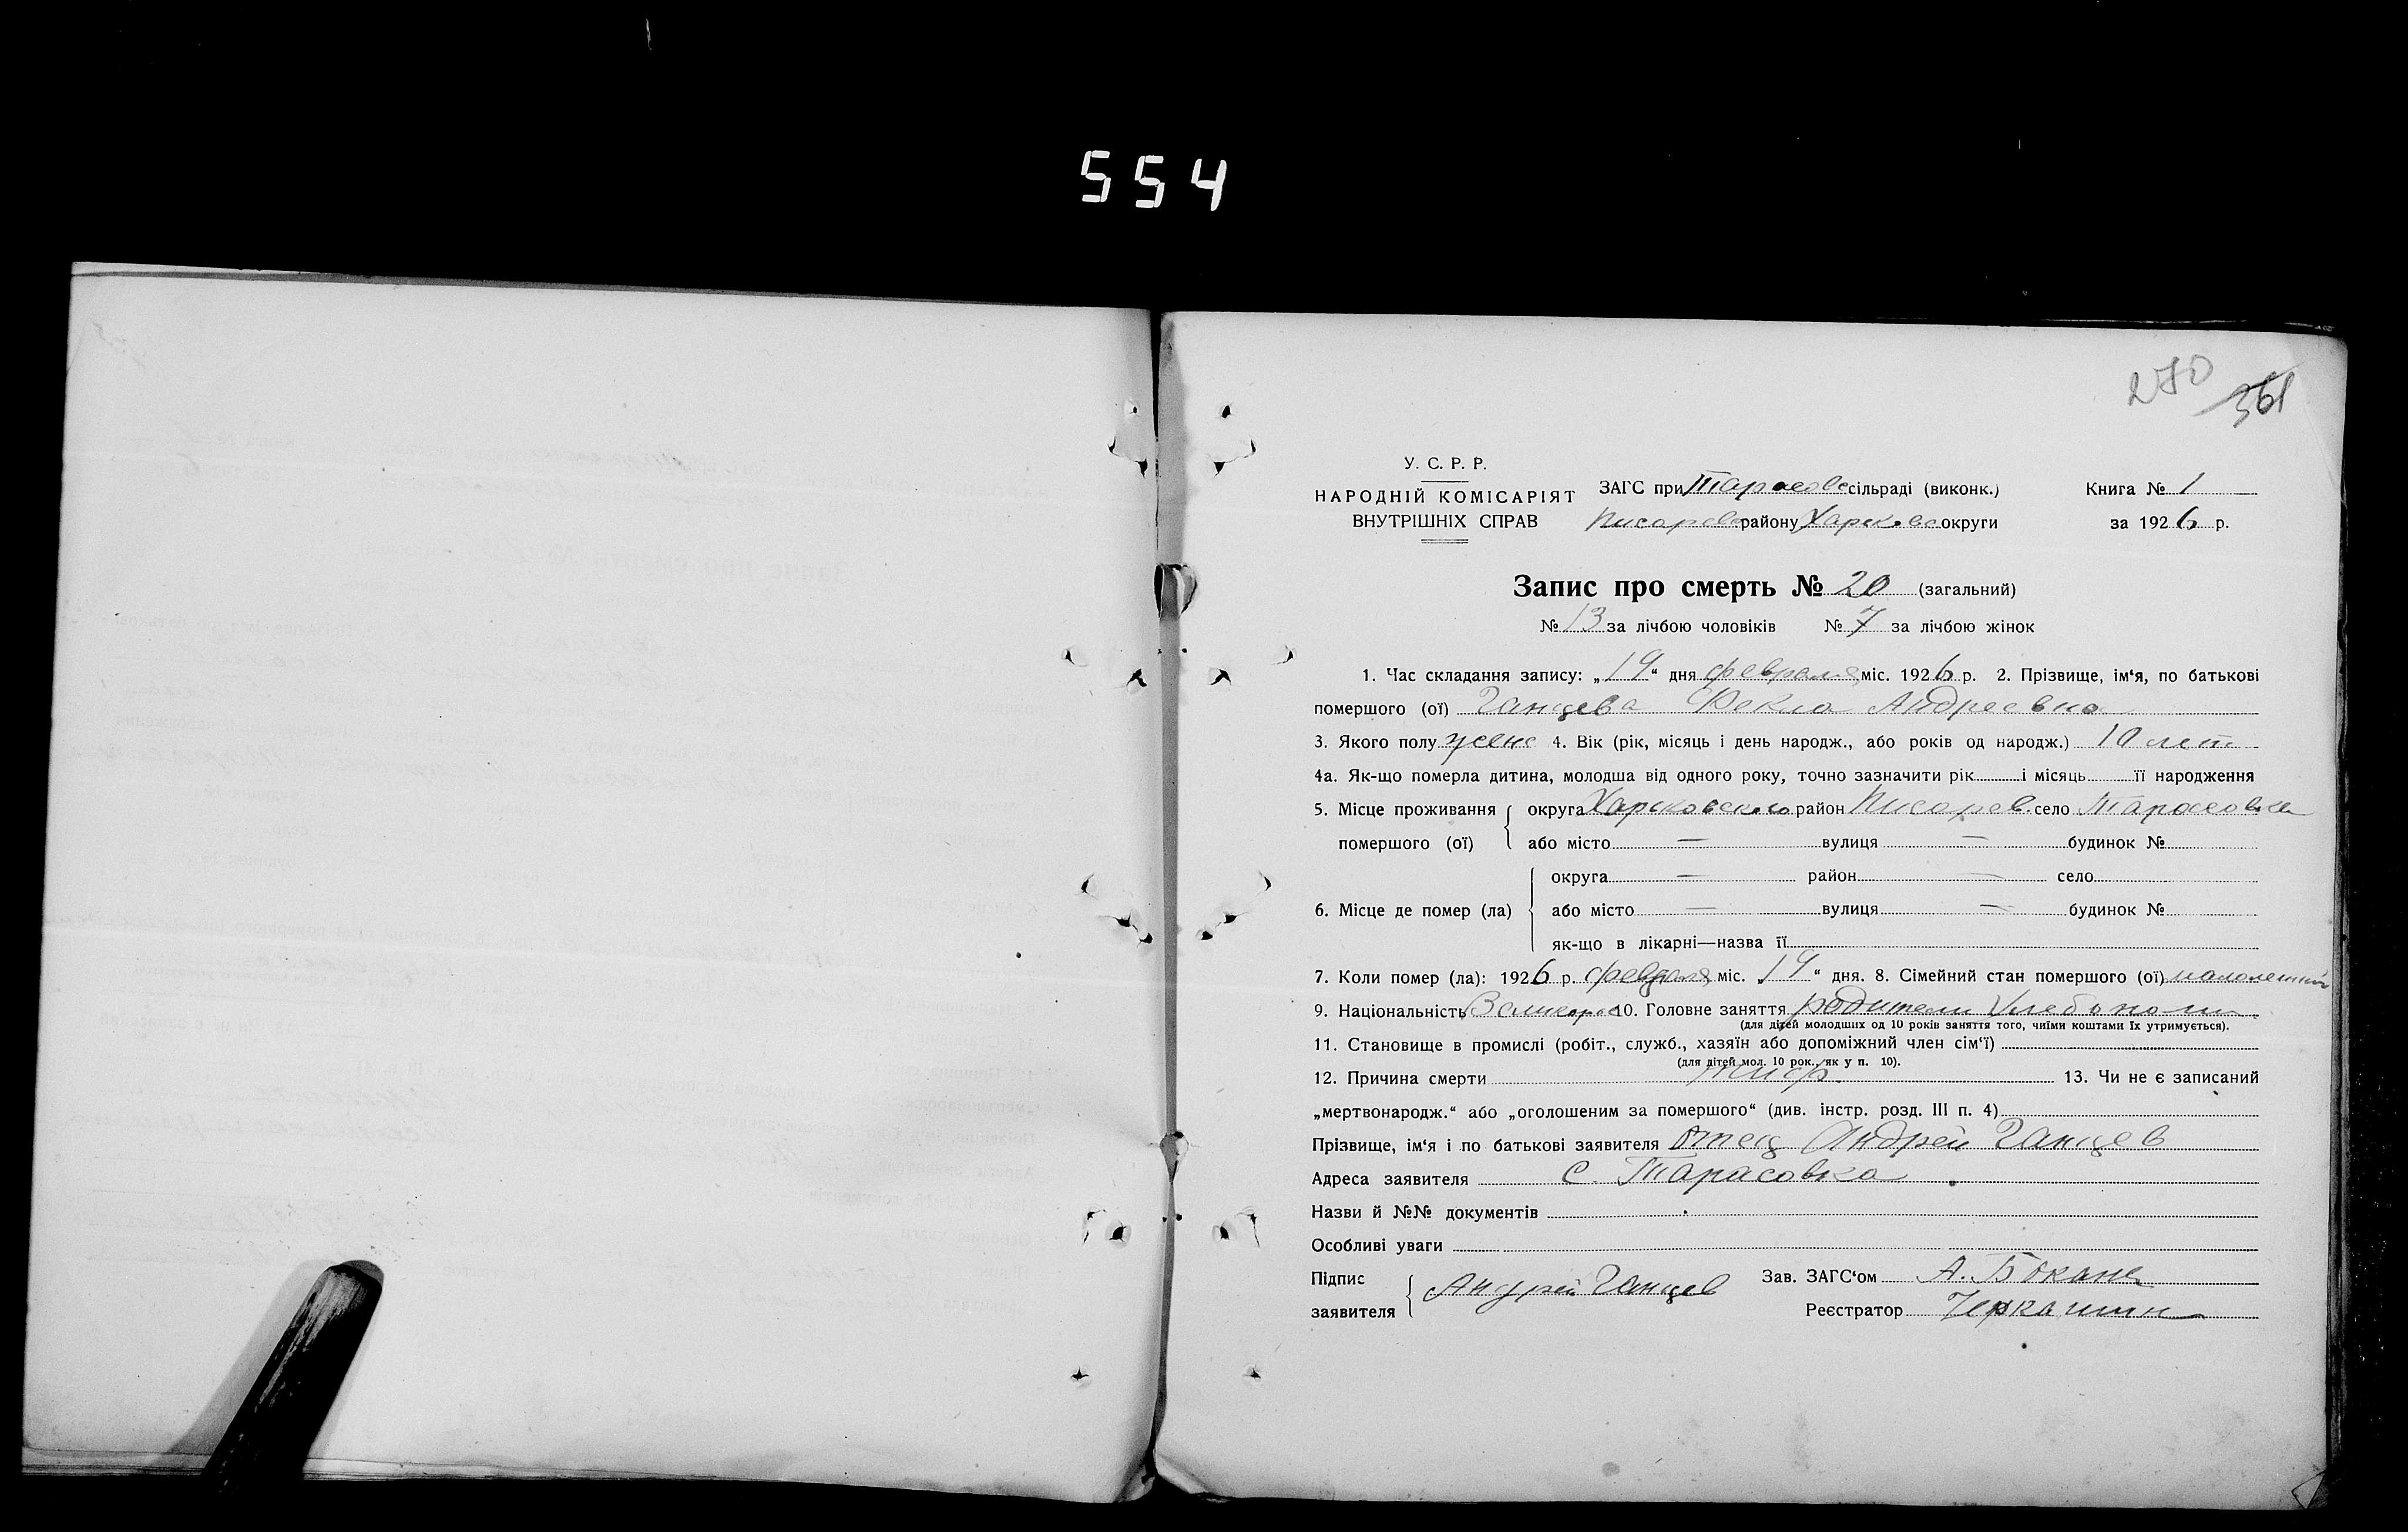 554
270 361
У. С. Р. Р.
НАРОДНІЙ КОМІСАРІЯТ
ВНУТРІШНІХ СПРАВ
ЗАГС при Тарасовс сільраді (виконк.)
Писарев району Харьковс округи
Книга № 1
за 1926 р.
Запис про смерть № 20 (загальний)
№ 13 за лічбою чоловіків № 7 за лічбою жінок
1. Час складання запису: „19“ дня февраля міс. 1926 р. 2. Прізвище, ім‘я, по батькові
помершого (ої) Ганцева Фекла Андреевна
3. Якого полу женс 4. Вік (рік, місяць і день народж., або років од народж.) 10 лет
4а. Як-що померла дитина, молодша від одного року, точно зазначити рік і місяць її народження
5. Місце проживання помершого (ої) округа Харьковского район Писарев. село Тарасовка
або місто — вулиця — будинок №
6. Місце де помер (ла) округа — район — село
або місто — вулиця — будинок №
як-що в лікарні—назва її
7. Коли помер (ла): 1926 р. февраля міс. 19“ дня. 8. Сімейний стан помершого (ої) малолетний
9. Національність Великорос 10. Головне заняття родители Хлебопаш
(для дітей молодших од 10 років заняття того, чиїми коштами їх утримується).
11. Становище в промислі (робіт., служб., хазяїн або допоміжний член сім‘ї)
(для дітей мол. 10 рок., як у п. 10).
12. Причина смерти тиф. 13. Чи не є записаний
„мертвонародж.“ або „оголошеним за помершого“ (див. інстр. розд. III п. 4)
Прізвище, ім‘я і по батькові заявителя Отец Андрей Ганцев
Адреса заявителя с. Тарасовка
Назви й №№ документів
Особливі уваги
Підпис заявителя Андрей Ганцев
Зав. ЗАГС‘ом А.
Реєстратор Черкашин